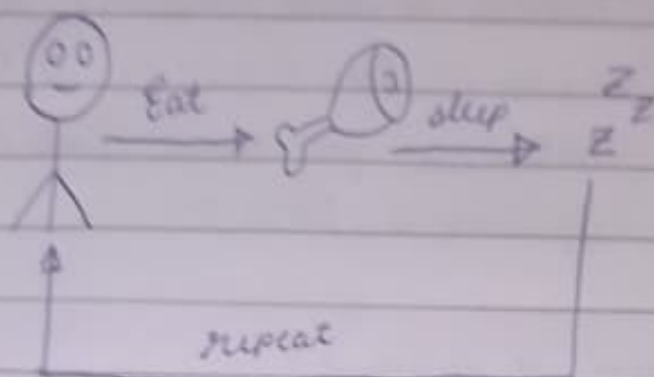 Eat
sleep
z
z
z
repeat